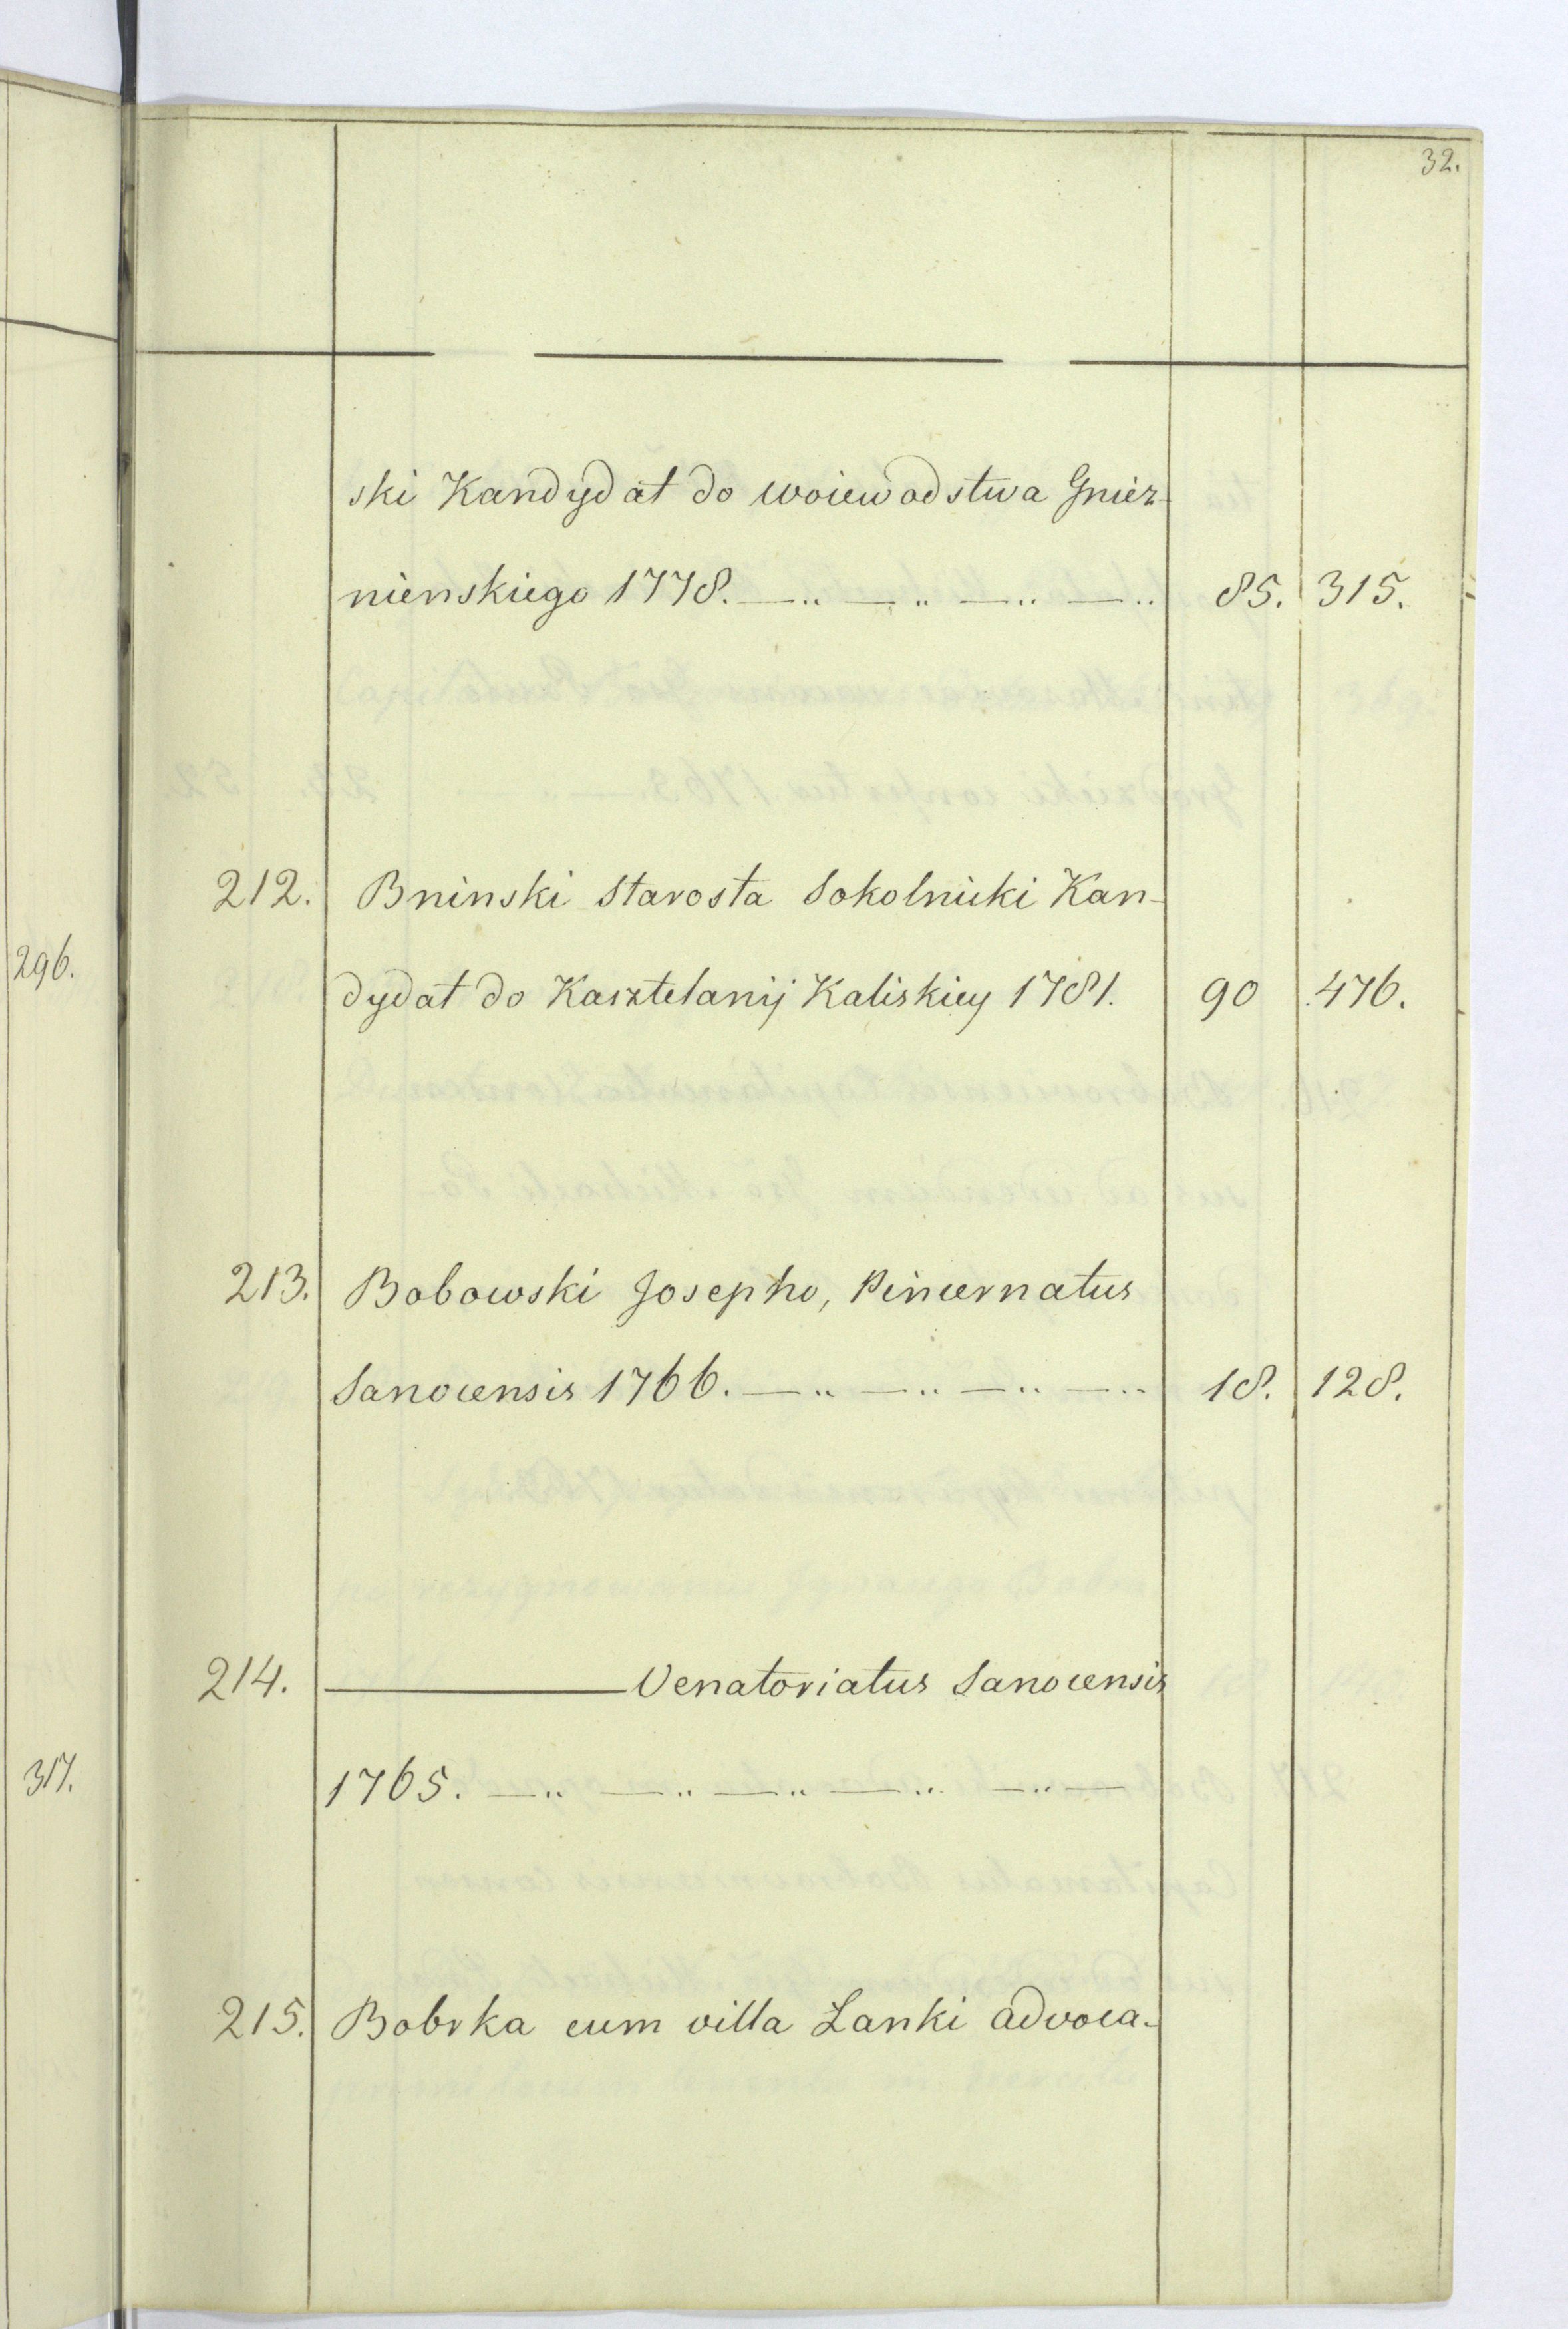 32.
ski Kandydat do woiewodstwa Gniez-
nienskiego 1778. —„ —„ —„ —„ 85. 315.
212. Bninski Starosta Sokolnicki Kan-
dydat do Kasztelanij Kaliskiey 1781. 90 476.
213. Bobowski Josepho, Pincernatus
Sanocensis 1766. —„ —„ —„ —„ 18. 128.
214. ——— Venatoriatus Sanocensis
1765. —„ —„ —„ —„ —„ —
215. Bobrka cum villa Lanki advoca-
296.
317.